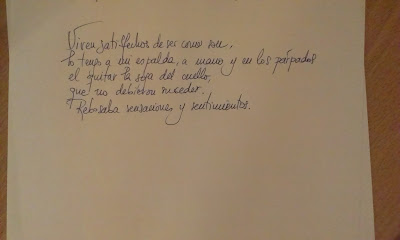 Viven satisfechos de ser como son,
lo tengo a mi espalda, a mano y en los párpados
el quitar la soga del cuello,
que no debieron suceder.
Rebosaba sensaciones y sentimientos.